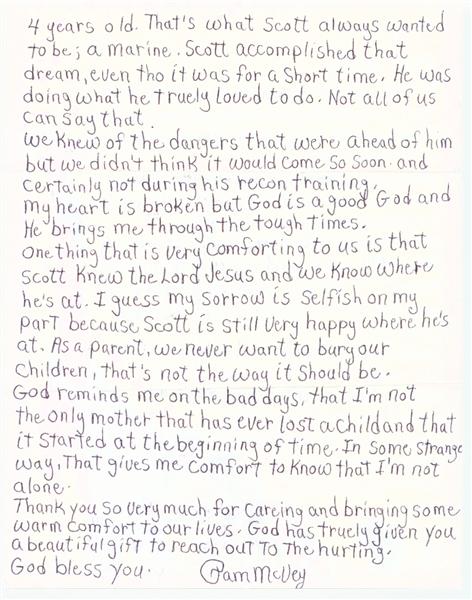 4 years old. That's what Scott always wanted
to be; a marine. Scott accomplished that
dream, even tho it was for a short time. He was
doing what he truely loved to do. Not all of us
can say that.
We knew of the dangers that were ahead of him
but we didn't think it would come so soon and
certainly not during his recon training.
My heart is broken but God is a good God and
He brings me through the tough times.
One thing that is very comforting to us is that
Scott knew the Lord Jesus and we know where
he's at. I guess my sorrow is selfish on my
part because Scott is still very happy where he's
at. As a parent, we never want to bury our
children, that's not the way it should be.
God reminds me on the bad days, that I'm not
the only mother that has ever lost a child and that
it started at the beginning of time. In some strange
way, That gives me comfort to know that I'm not
alone.
Thank you so very much for careing and bringing some
warm comfort to our lives. God has truely given you
a beautiful gift to reach out to the hurting.
God bless you. Pam McVey